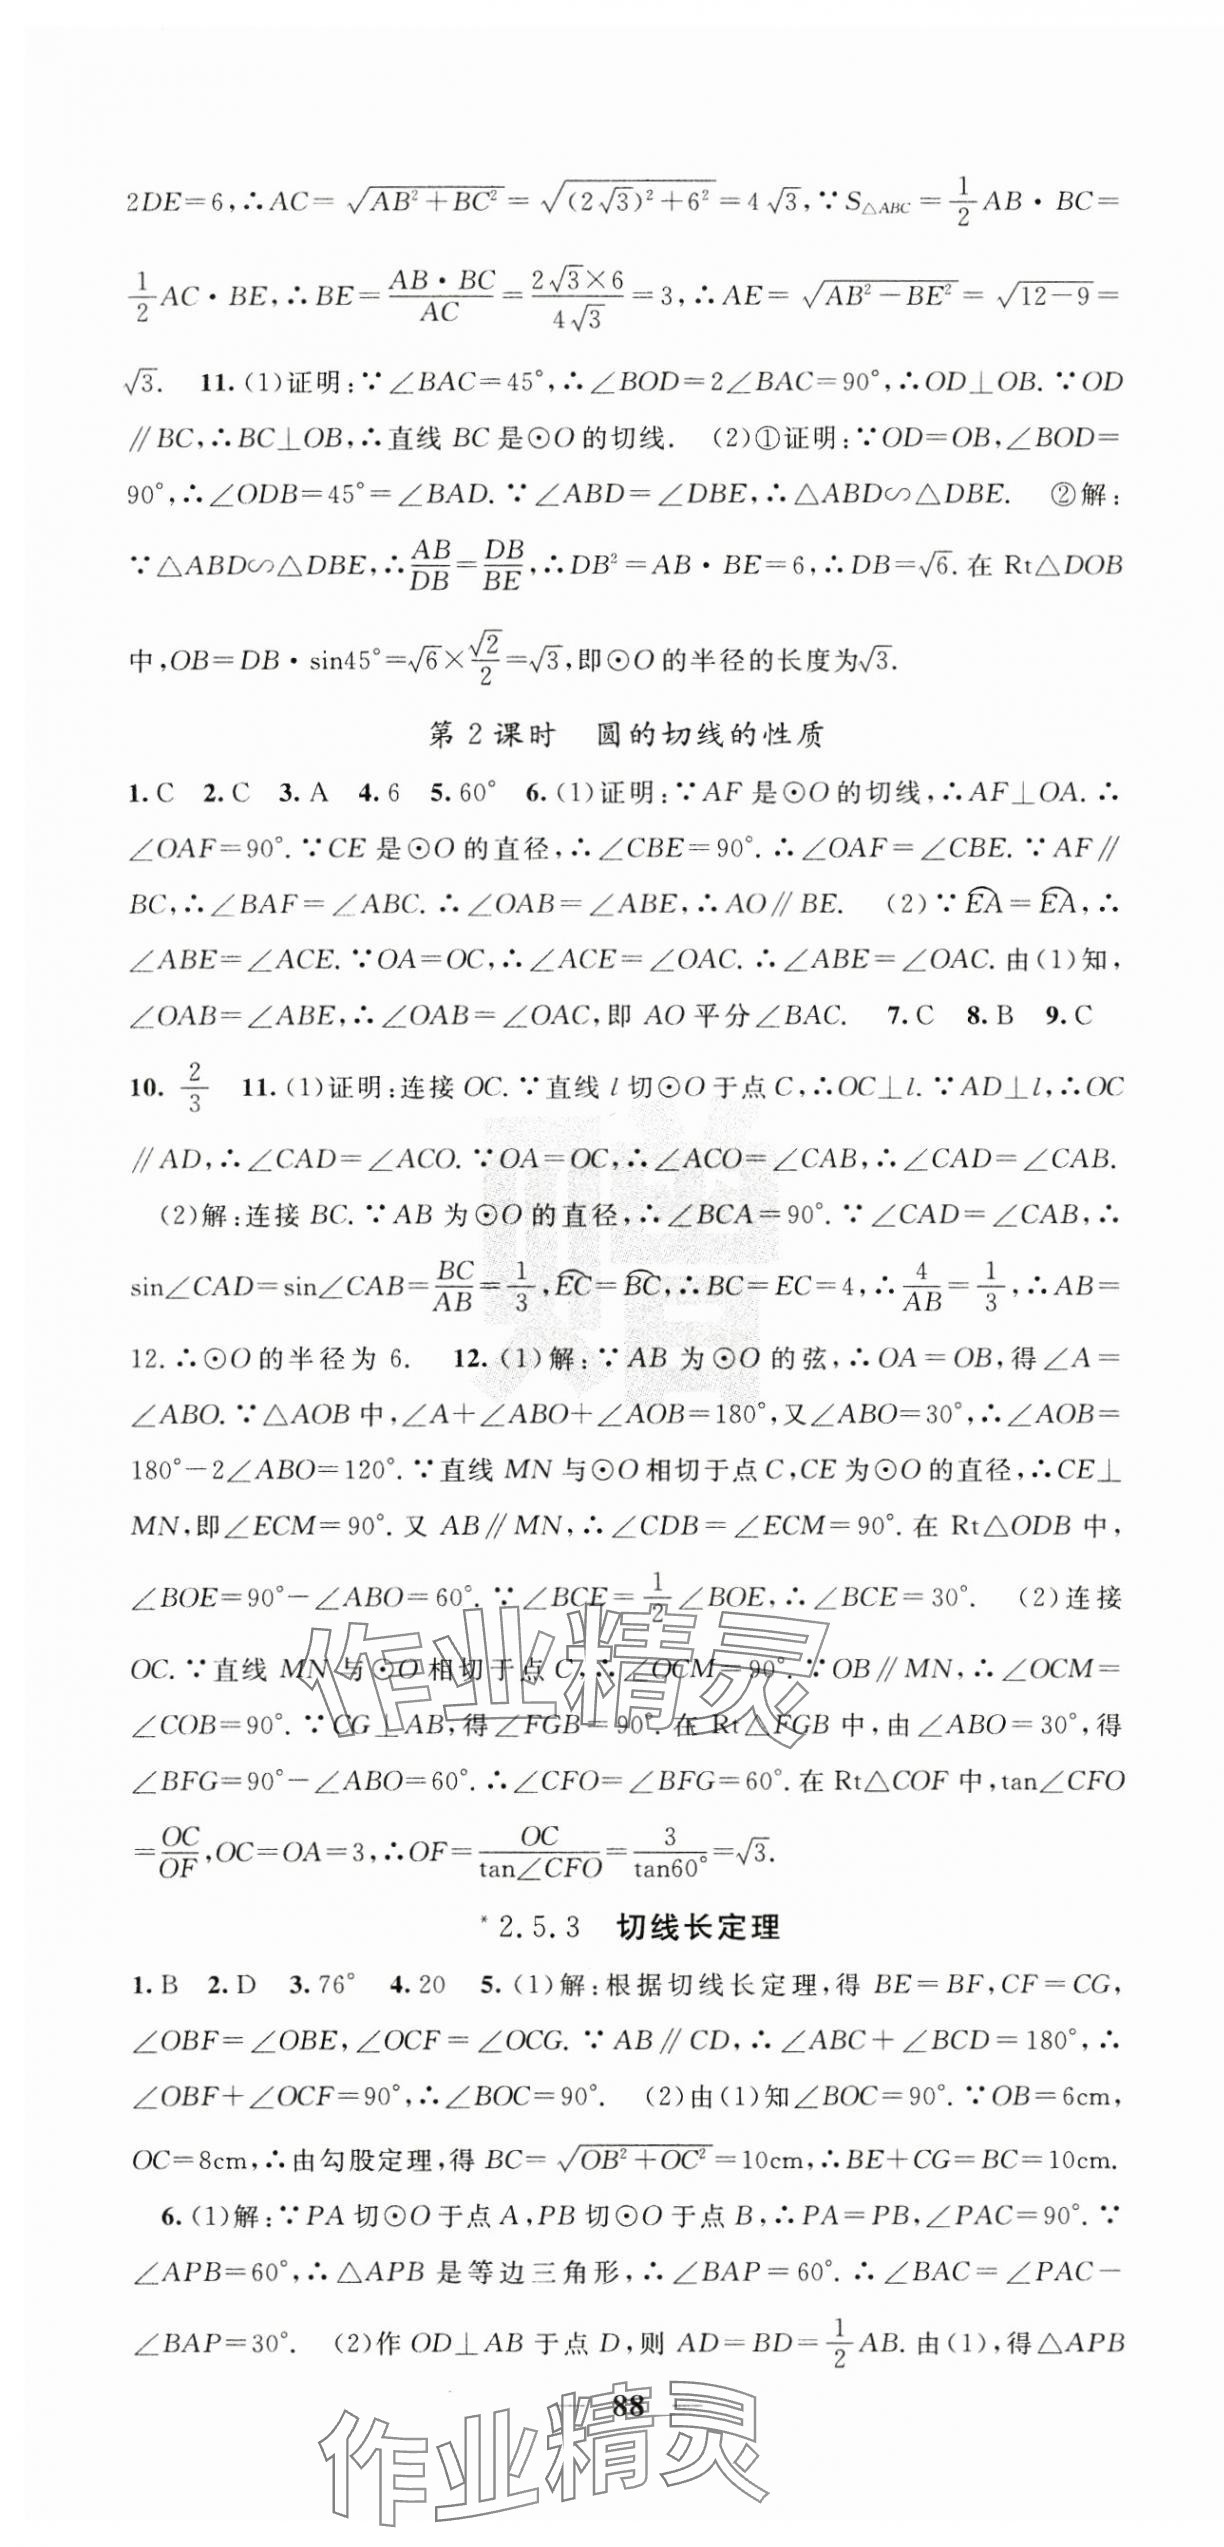 2DE=6,∴AC=√(AB²+BC²)=√((2√3)²+6²)=4√3,∵S△ABC=1/2 AB·BC=
1/2 AC·BE,∴BE=(AB·BC)/AC=(2√3×6)/(4√3)=3,∴AE=√(AB²-BE²)=√(12-9)=
√3. 11.(1)证明:∵∠BAC=45°,∴∠BOD=2∠BAC=90°,∴OD⊥OB.∵OD
∥BC,∴BC⊥OB,∴直线BC是⊙O的切线. (2)①证明:∵OD=OB,∠BOD=
90°,∴∠ODB=45°=∠BAD.∵∠ABD=∠DBE,∴△ABD∽△DBE. ②解:
∵△ABD∽△DBE,∴AB/DB=DB/BE,∴DB²=AB·BE=6,∴DB=√6.在Rt△DOB
中,OB=DB·sin45°=√6×√2/2=√3,即⊙O的半径的长度为√3.
第2课时 圆的切线的性质
1.C 2.C 3.A 4.6 5.60° 6.(1)证明:∵AF是⊙O的切线,∴AF⊥OA.∴
∠OAF=90°.∵CE是⊙O的直径,∴∠CBE=90°.∴∠OAF=∠CBE.∵AF∥
BC,∴∠BAF=∠ABC.∴∠OAB=∠ABE,∴AO∥BE. (2)∵⌒EA=⌒EA,∴
∠ABE=∠ACE.∵OA=OC,∴∠ACE=∠OAC.∴∠ABE=∠OAC.由(1)知,
∠OAB=∠ABE,∴∠OAB=∠OAC,即AO平分∠BAC. 7.C 8.B 9.C
10. 2/3 11.(1)证明:连接OC.∵直线l切⊙O于点C,∴OC⊥l.∵AD⊥l,∴OC
∥AD,∴∠CAD=∠ACO.∵OA=OC,∴∠ACO=∠CAB,∴∠CAD=∠CAB.
(2)解:连接BC.∵AB为⊙O的直径,∴∠BCA=90°.∵∠CAD=∠CAB,∴
sin∠CAD=sin∠CAB=BC/AB=1/3,⌒EC=⌒BC,∴BC=EC=4,∴4/AB=1/3,∴AB=
12.∴⊙O的半径为6. 12.(1)解:∵AB为⊙O的弦,∴OA=OB,得∠A=
∠ABO.∵△AOB中,∠A+∠ABO+∠AOB=180°,又∠ABO=30°,∴∠AOB=
180°-2∠ABO=120°.∵直线MN与⊙O相切于点C,CE为⊙O的直径,∴CE⊥
MN,即∠ECM=90°.又AB∥MN,∴∠CDB=∠ECM=90°.在Rt△ODB中,
∠BOE=90°-∠ABO=60°.∵∠BCE=1/2∠BOE,∴∠BCE=30°. (2)连接
OC.∵直线MN与⊙O相切于点C,∴∠OCM=90°.∵OB∥MN,∴∠OCM=
∠COB=90°.∵CG⊥AB,得∠FGB=90°.在Rt△FGB中,由∠ABO=30°,得
∠BFG=90°-∠ABO=60°.∴∠CFO=∠BFG=60°.在Rt△COF中,tan∠CFO
=OC/OF,OC=OA=3,∴OF=OC/tan∠CFO=3/tan60°=√3.
*2.5.3 切线长定理
1.B 2.D 3.76° 4.20 5.(1)解:根据切线长定理,得BE=BF,CF=CG,
∠OBF=∠OBE,∠OCF=∠OCG.∵AB∥CD,∴∠ABC+∠BCD=180°,∴
∠OBF+∠OCF=90°,∴∠BOC=90°. (2)由(1)知∠BOC=90°.∵OB=6cm,
OC=8cm,∴由勾股定理,得BC=√(OB²+OC²)=10cm,∴BE+CG=BC=10cm.
6.(1)解:∵PA切⊙O于点A,PB切⊙O于点B,∴PA=PB,∠PAC=90°.∵
∠APB=60°,∴△APB是等边三角形,∴∠BAP=60°.∴∠BAC=∠PAC-
∠BAP=30°. (2)作OD⊥AB于点D,则AD=BD=1/2 AB.由(1),得△APB
88
作业精灵
作业精灵